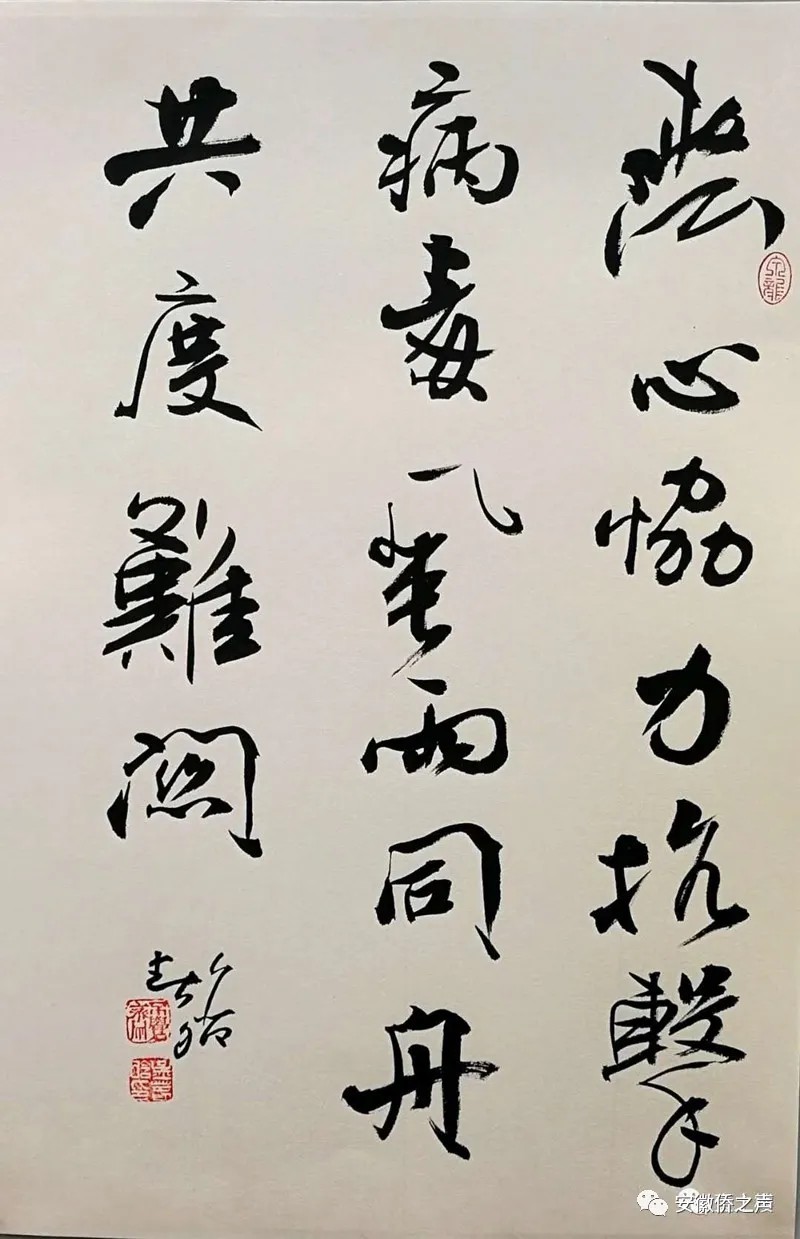 齊心恊力抗擊
病毒風雨同舟
共度難關
安徽侨之声